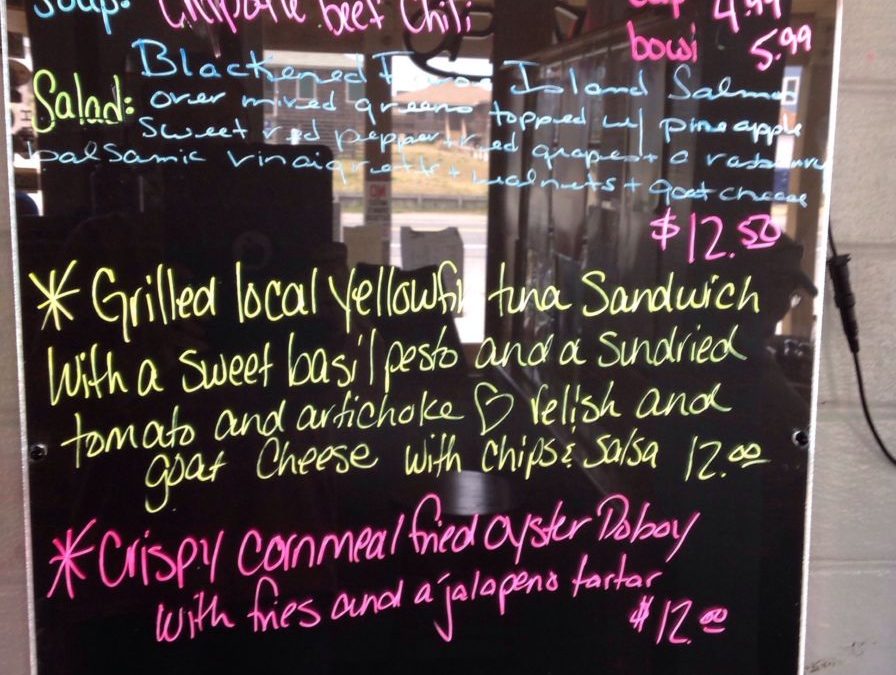 Soup: Chipotle beef Chili cup 4.99
bowl 5.99
Salad: Blackened Faroe Island Salmon
over mixed greens topped w/ pineapple
Sweet red pepper + red grapes + a rasberry
balsamic vinaigrette + walnuts + goat cheese
$12.50
* Grilled local yellowfin tuna Sandwich
With a sweet basil pesto and a Sundried
tomato and artichoke relish and
goat Cheese with chips & salsa 12.00
* Crispy cornmeal fried oyster Poboy
with fries and a jalapeno tartar
$12.00